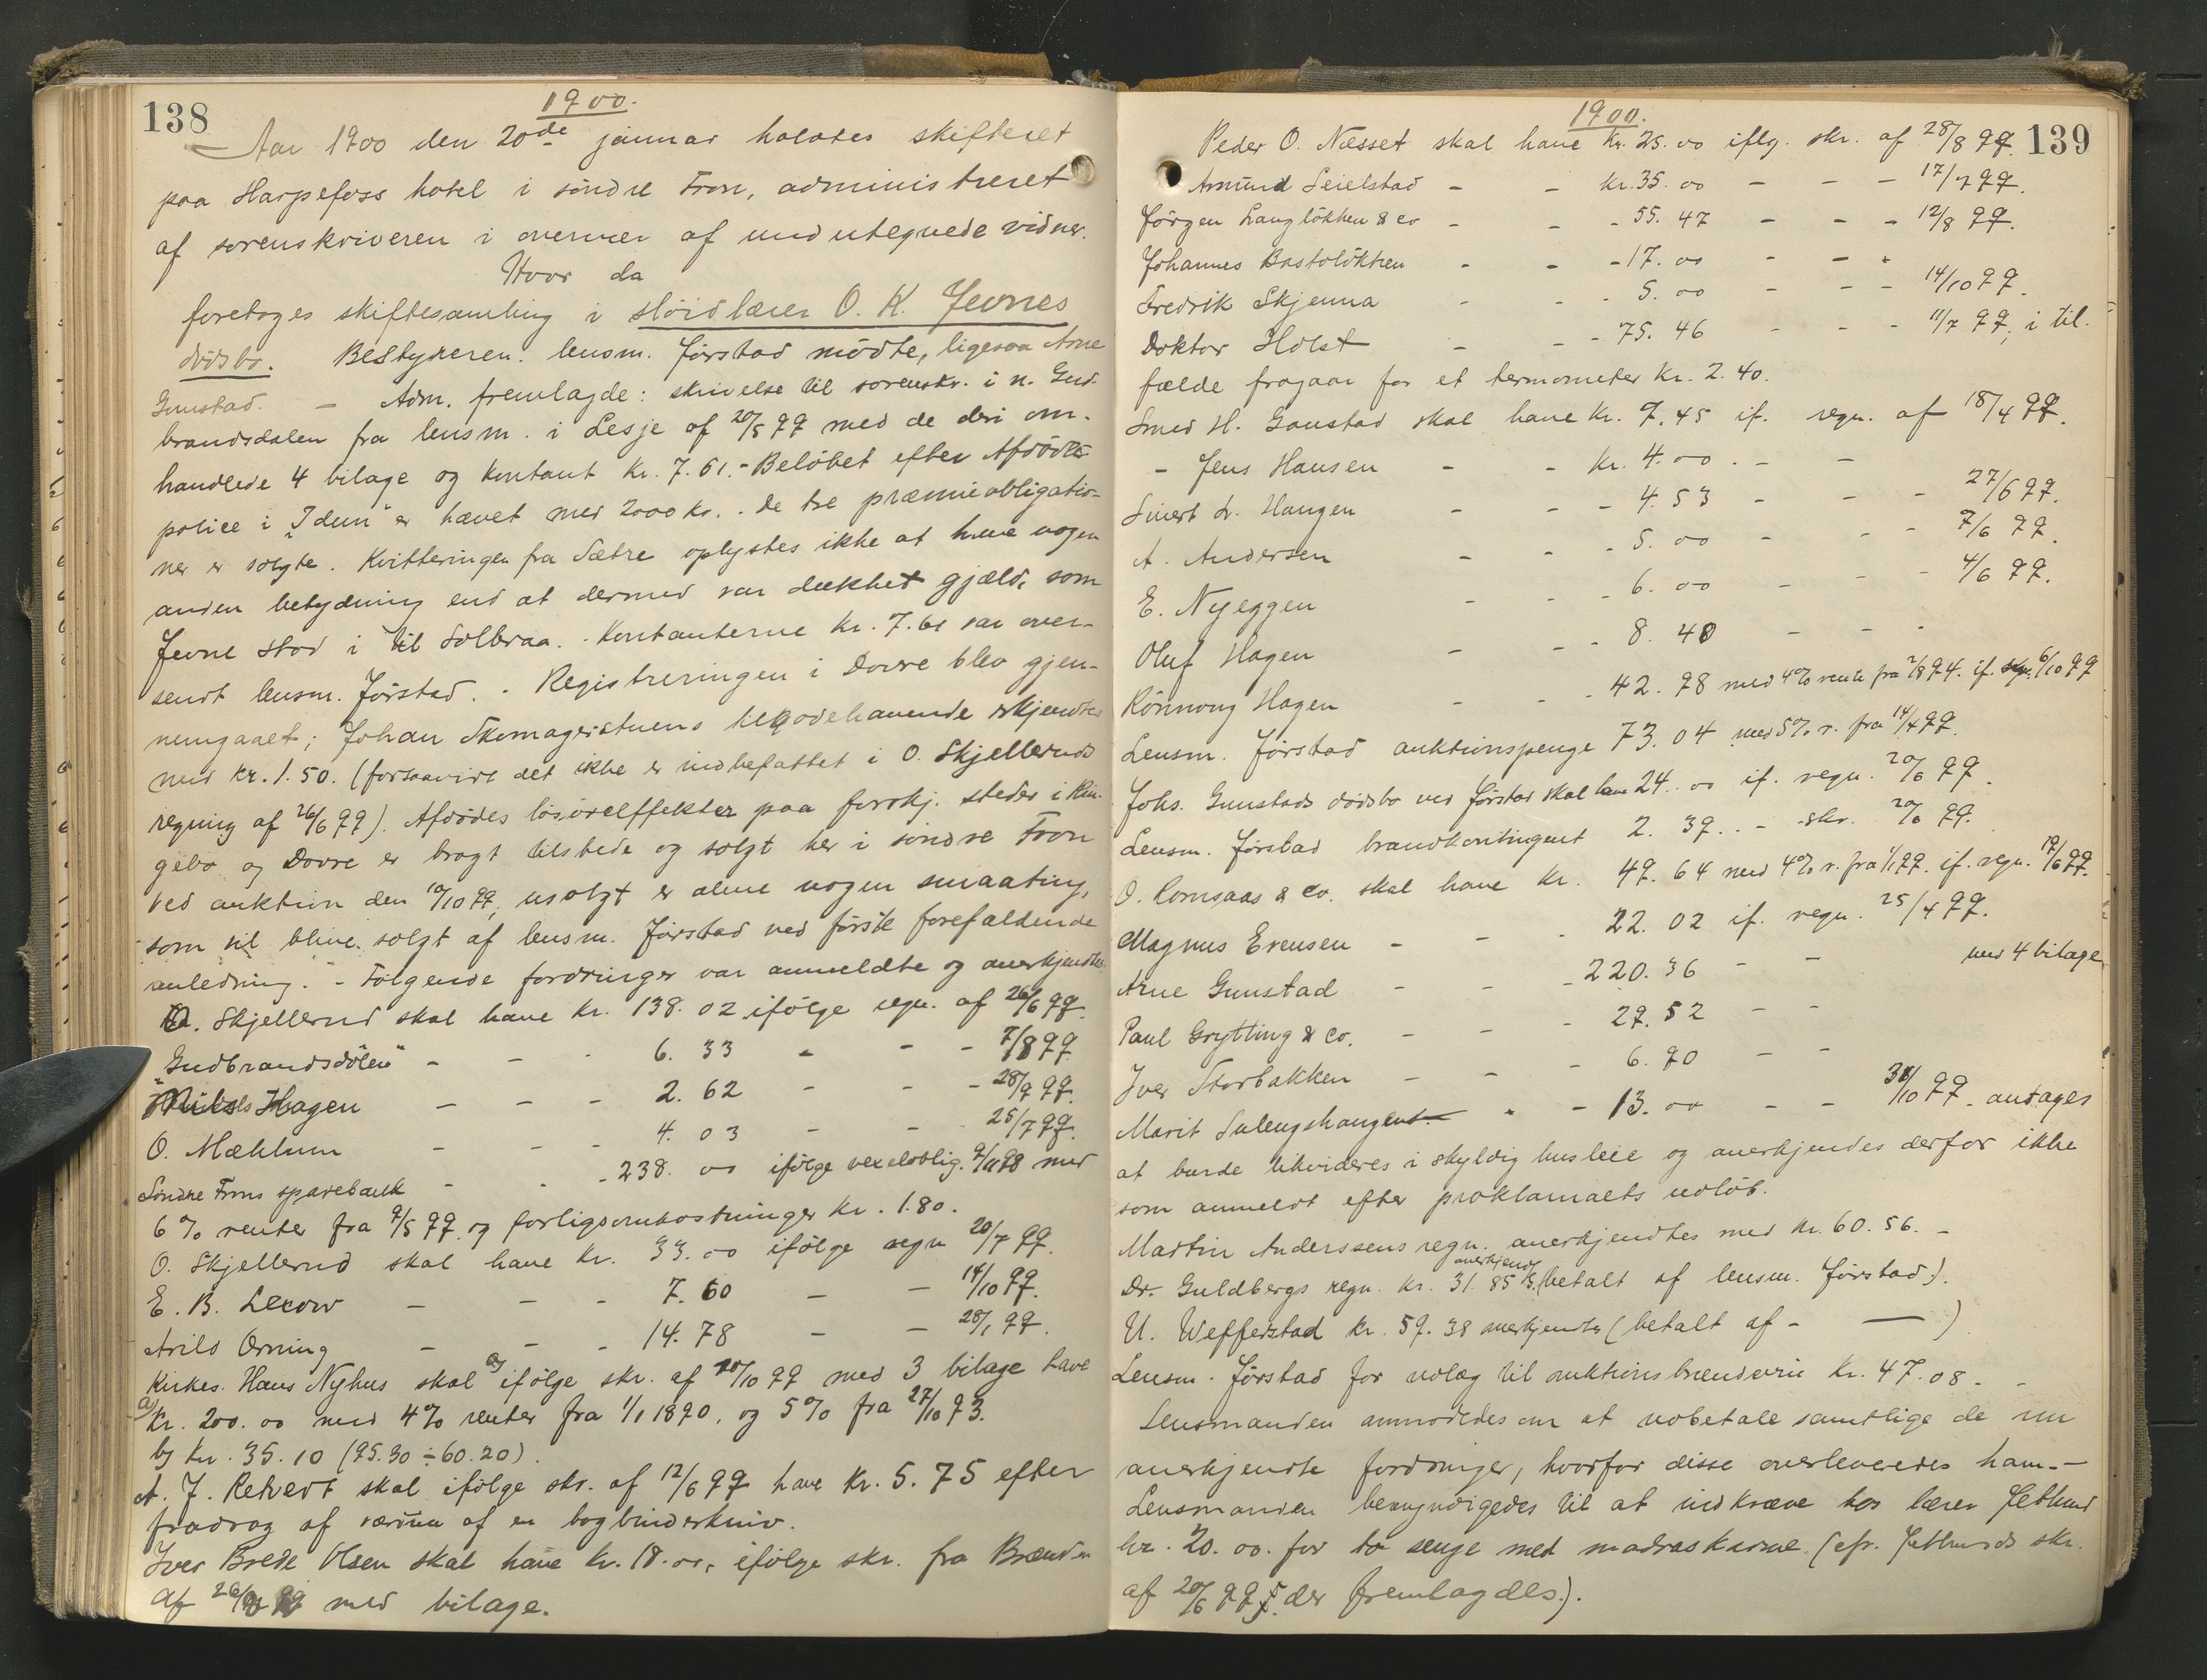 138
1900.
Aar 1900 den 20de januar holdtes skifteret
paa Harpefoss hotel i søndre Fron, administreret
af sorenskriveren i overvær af undertegnede vidner.
Hvor da
foretoges skiftesamling i sløidlærer O. K. Jevnes
dødsbo. Bestyreren. lensm. Jørstad mødte, ligesaa Arne
Gunstad. – Adm. fremlagde: skrivelse til sorenskr. i n. Gud-
brandsdalen fra lensm. i Lesje af 20/5 99 med de deri om-
handlede 4 bilage og kontant kr. 7.61.- Beløbet efter Afdødes
police i „Idun" er hævet med 2000 kr. - De tre præmieobligatio-
ner er solgte. Kvitteringen fra Sætre oplystes ikke at have nogen
anden betydning end at dermed var dækket gjæld, som
Jevne stod i til Solbraa. - Kontanterne kr. 7.61 var over-
sendt lensm. Jørstad. - Registreringen i Dovre blev gjen-
nemgaaet; Johan Skomagerstuens tilgodehavende erkjendtes
med kr. 1.50. (forsaavidt det ikke er indbefattet i O. Skjelleruds
regning af 26/6 99). Afdødes løsøreffekter paa forskj. steder i Rin-
gebo og Dovre er bragt tilstede og solgt her i søndre Fron
ved auktion den 10/10 99, usolgt er alene nogen smaating,
som vil blive solgt af lensm. Jørstad ved første forefaldende
anledning. - Følgende fordringer var anmeldte og anerkjendtes
O. Skjellerud skal have kr. 138.02 ifølge regn. af 26/6 99.
„Gudbrandsdølen" - - - 6.33 - - - 7/8 99
Nils Hagen - - - 2.62 - - - 28/9 99.
O. Mæhlum - - - 4.03 - - - 25/7 99.
Søndre Frons sparebank - - - 238.00 ifølge vexeloblig. 9/11 98 med
6 % renter fra 9/5 99 og forligsomkostninger kr. 1.80.
O. Skjellerud skal have kr. 33.00 ifølge regn 20/7 99.
E. B. Lecow - - - 7.60 - - 14/10 99.
Arild Orning - - - 14.78 - - 28/1 99.
Kirkes. Hans Nyhus skal ifølge skr. af 20/10 99 med 3 bilage have
a) kr. 200.00 med 4 % renter fra 1/1 1890, og 5 % fra 27/10 93.
b) kr. 35.10 (95.30 ÷ 60.20).
A. J. Retvedt skal ifølge skr. af 12/6 99 have kr. 5.75 efter
fradrag af værdien af en bogbinderkniv.
Iver Brede Olsen skal have kr. 18.00, ifølge skr. fra
af 99 med bilage.
1900.
139
Peder O. Næsset skal have kr. 25.00 iflg. skr. af 28/8 99.
Amund Seielstad - - kr. 35.00 - - - 17/7 99.
Jørgen Langløkken & co - - - 55.47 - - - 12/8 99.
Johannes Bostoløkken - - - 17.00 - - -
Fredrik Skjenna - - - 5.00 - - - 14/10 99.
Doktor Holst - - - 75.46 - - - 11/7 99, i til-
fælde fragaar for et termometer kr. 2.40.
Smed H. Gaustad skal have kr. 9.45 if. regn. af 18/4 99.
- Jens Hansen - - kr. 4.00. - -
Sivert Hr. Haugen - - - 4.53 - - - 27/6 99.
A. Andersen - - - 5.00 - - - 9/6 99.
E. Nyeggen - - - 6.00 - - - 4/6 99.
Oluf Hagen - - - 8.40 - - -
Rønnoug Hagen - - - 42.98 med 4 % rente fra 2/8 94. if. 6/10 99
Lensm. Jørstad auktionspenge 73.04 med 5 % r. fra 14/4 99.
Johs. Gunstads dødsbo ved Jørstad skal have 24.00 if. regn. 20/6 99.
Lensm. Jørstad brandkontingent 2.39. - - skr. 20/6 99.
O. Romsaas & co. skal have kr. 49.64 med 4 % r. fra 1/1 99. if. regn. 19/6 99.
Magnus Evensen - - - 22.02 if. regn. 25/4 99.
Arne Gunstad - - - 220.36 - - med 4 bilage
Paul Grytting & co. - - - 29.52 - -
Iver Storbakken - - - 6.90 - -
Marit Sulengshaugen - - 13.00 - - 31/10 99. antages
at burde likvideres i skyldig husleie og anerkjendes derfor ikke
som anmeldt efter proklamaets udløb.
Martin Anderssens regn. anerkjendtes med kr. 60.56. -
anerkjendt
Dr. Guldbergs regn. kr. 31.85 (betalt af lensm. Jørstad).
U. Wefferstad kr. 59.38 anerkjendtes (betalt af - — )
Lensm. Jørstad for udlæg til auktionsbrændevin kr. 47.08. -
Lensmanden anmodedes om at udbetale samtlige de nu
anerkjendte fordringer, hvorfor disse overleveredes ham. -
Lensmanden bemyndigedes til at indkræve hos lærer Jetlund
kr. 20.00. for to senge med madraskarme (cfr. Jetlunds skr.
af 20/6 99, der fremlagdes).